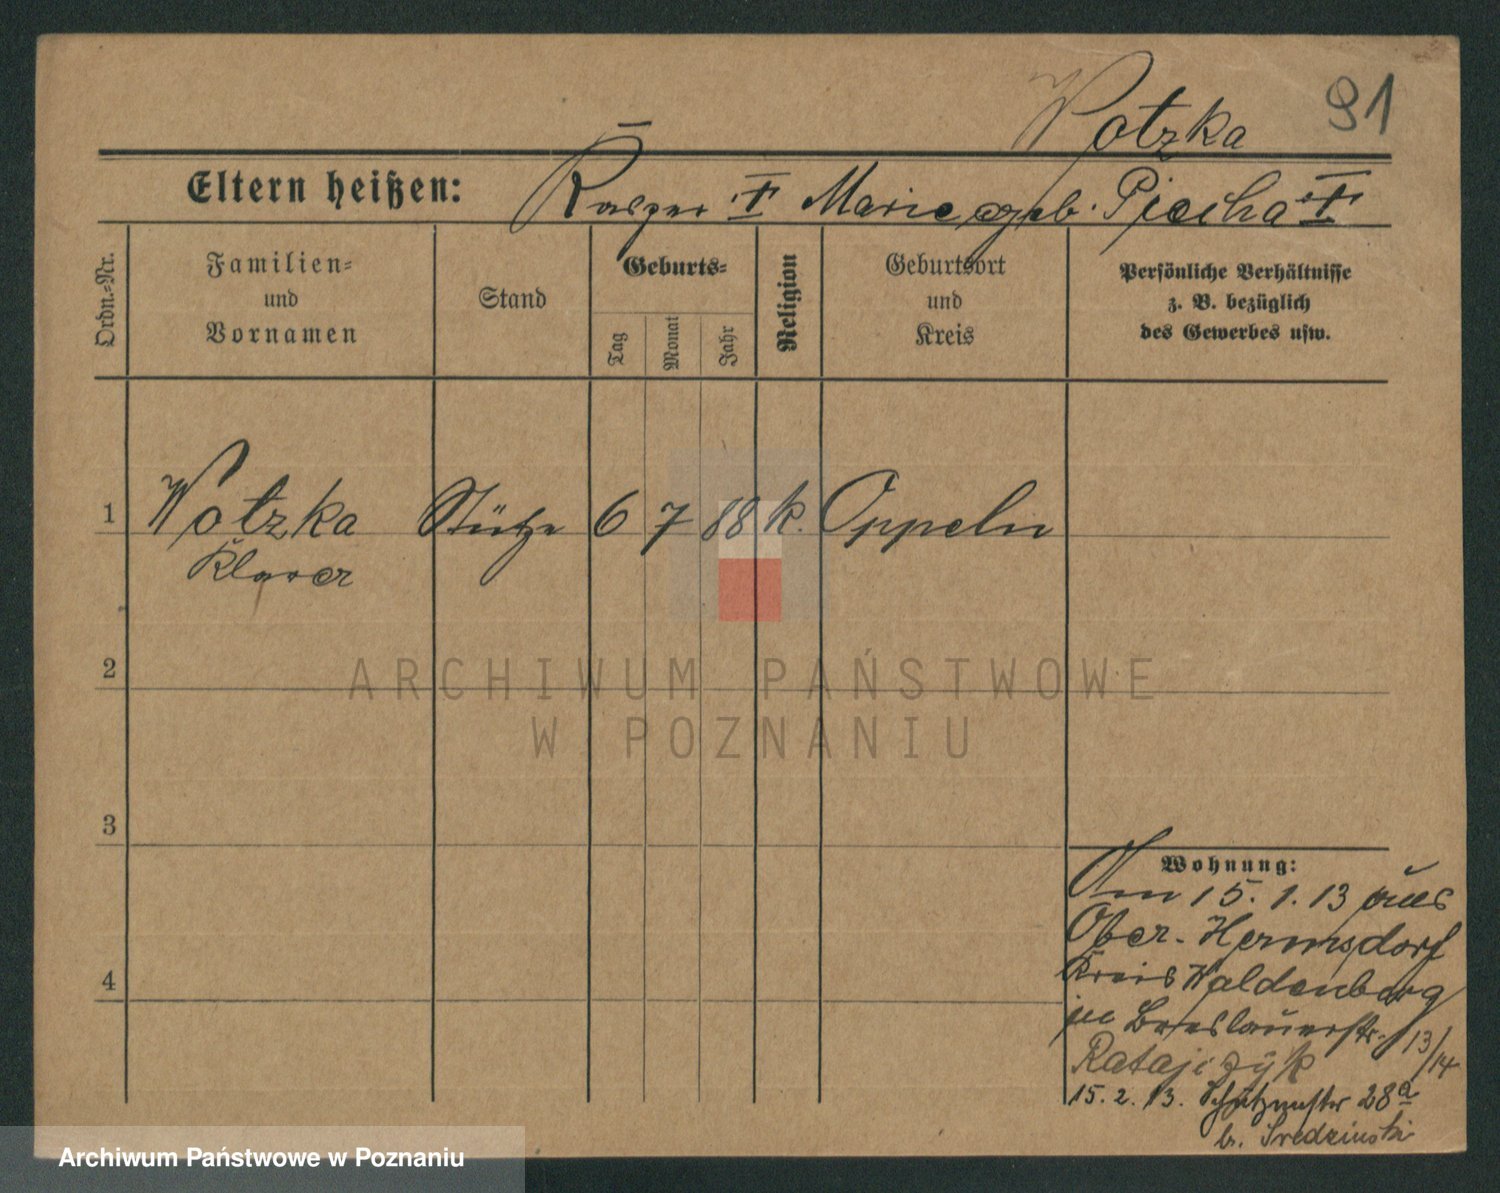 Wotzka 91
Eltern heißen: Kasper † Marie geb. Piecha †
Ordn.-Nr.
Familien-
und
Vornamen
Stand
Geburts-
Tag
Monat
Jahr
Religion
Geburtsort
und
Kreis
Persönliche Verhältnisse
z. B. bezüglich
des Gewerbes usw.
1 Wotzka Stütze 6 7 88 k. Oppeln
2
ARCHIWUM PAŃSTWOWE
W POZNANIU
3
Wohnung:
Am 15. 1. 13 aus
Ober-Hermsdorf
4
Kreis Waldenburg
Breslauerstr. 13/14
Ratajczyk
15. 2. 13. Schützenstr 28a
b. Sredzinski
Archiwum Państwowe w Poznaniu